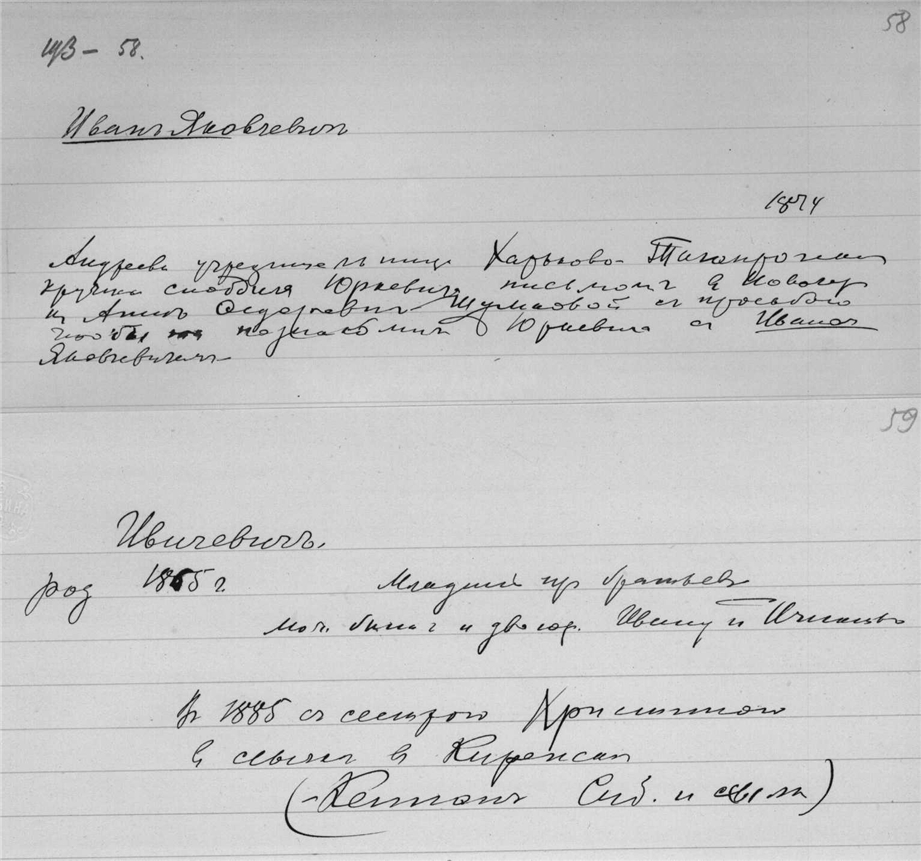 58
ЩВ – 58.
Иванъ Яковлевичъ
1874
Андреева учредительница Харьково-Таганрогскаго
кружка снабдила Юркевича письмомъ въ Новочер
къ Аннѣ Федоровнѣ Шумковой съ просьбою
чтобы познакомить Юркевича съ Иваномъ
Яковлевичемъ
59
Ивичевичъ.
род 1865 г Младшій из братьевъ
мож. быть и двоюр. Ивану и Игнатію
Въ 1885 съ сестрою Христиной
въ ссылкѣ въ Киренскѣ
(Кеннанъ Сиб. и ссылка)